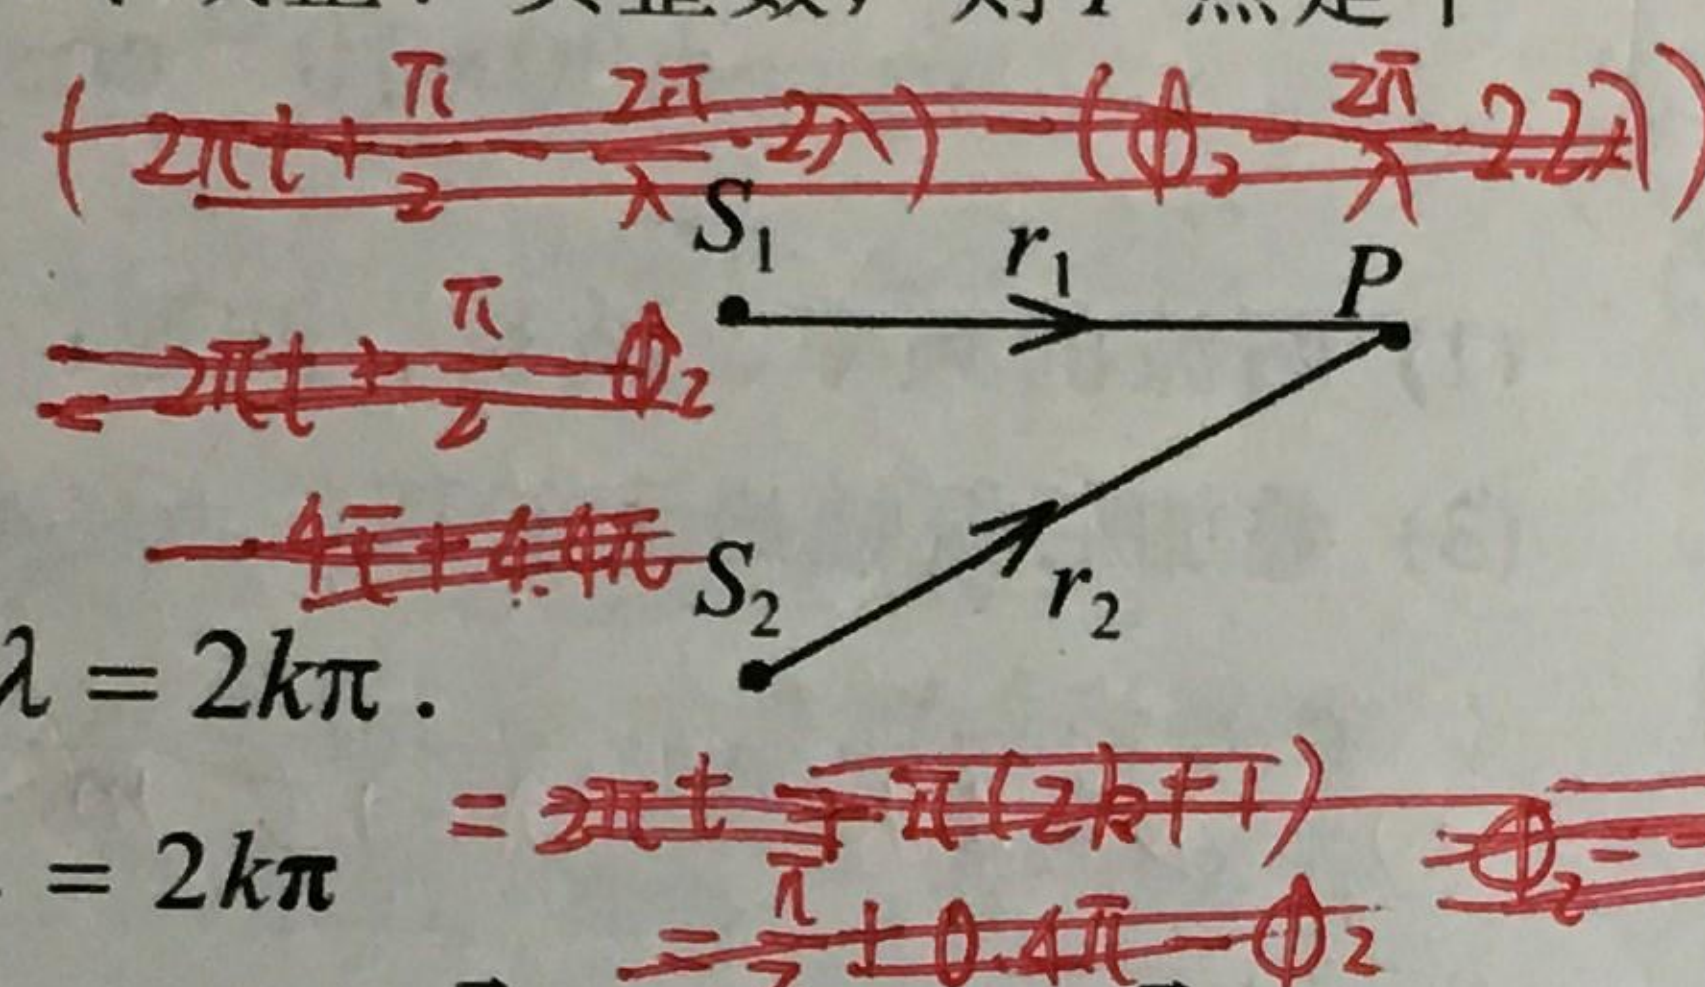 整数，则P点是
(2πt + π/2 - 2π/λ · 2λ) - (ϕ₂ - 2π/λ 2.2λ)
S₁ r₁ P
= 2πt + π/2 - ϕ₂
- 4π + 4.4π
S₂ r₂
λ = 2kπ .
= 2πt + π(2k+1)
= 2kπ
= π/2 + 0.4π - ϕ₂